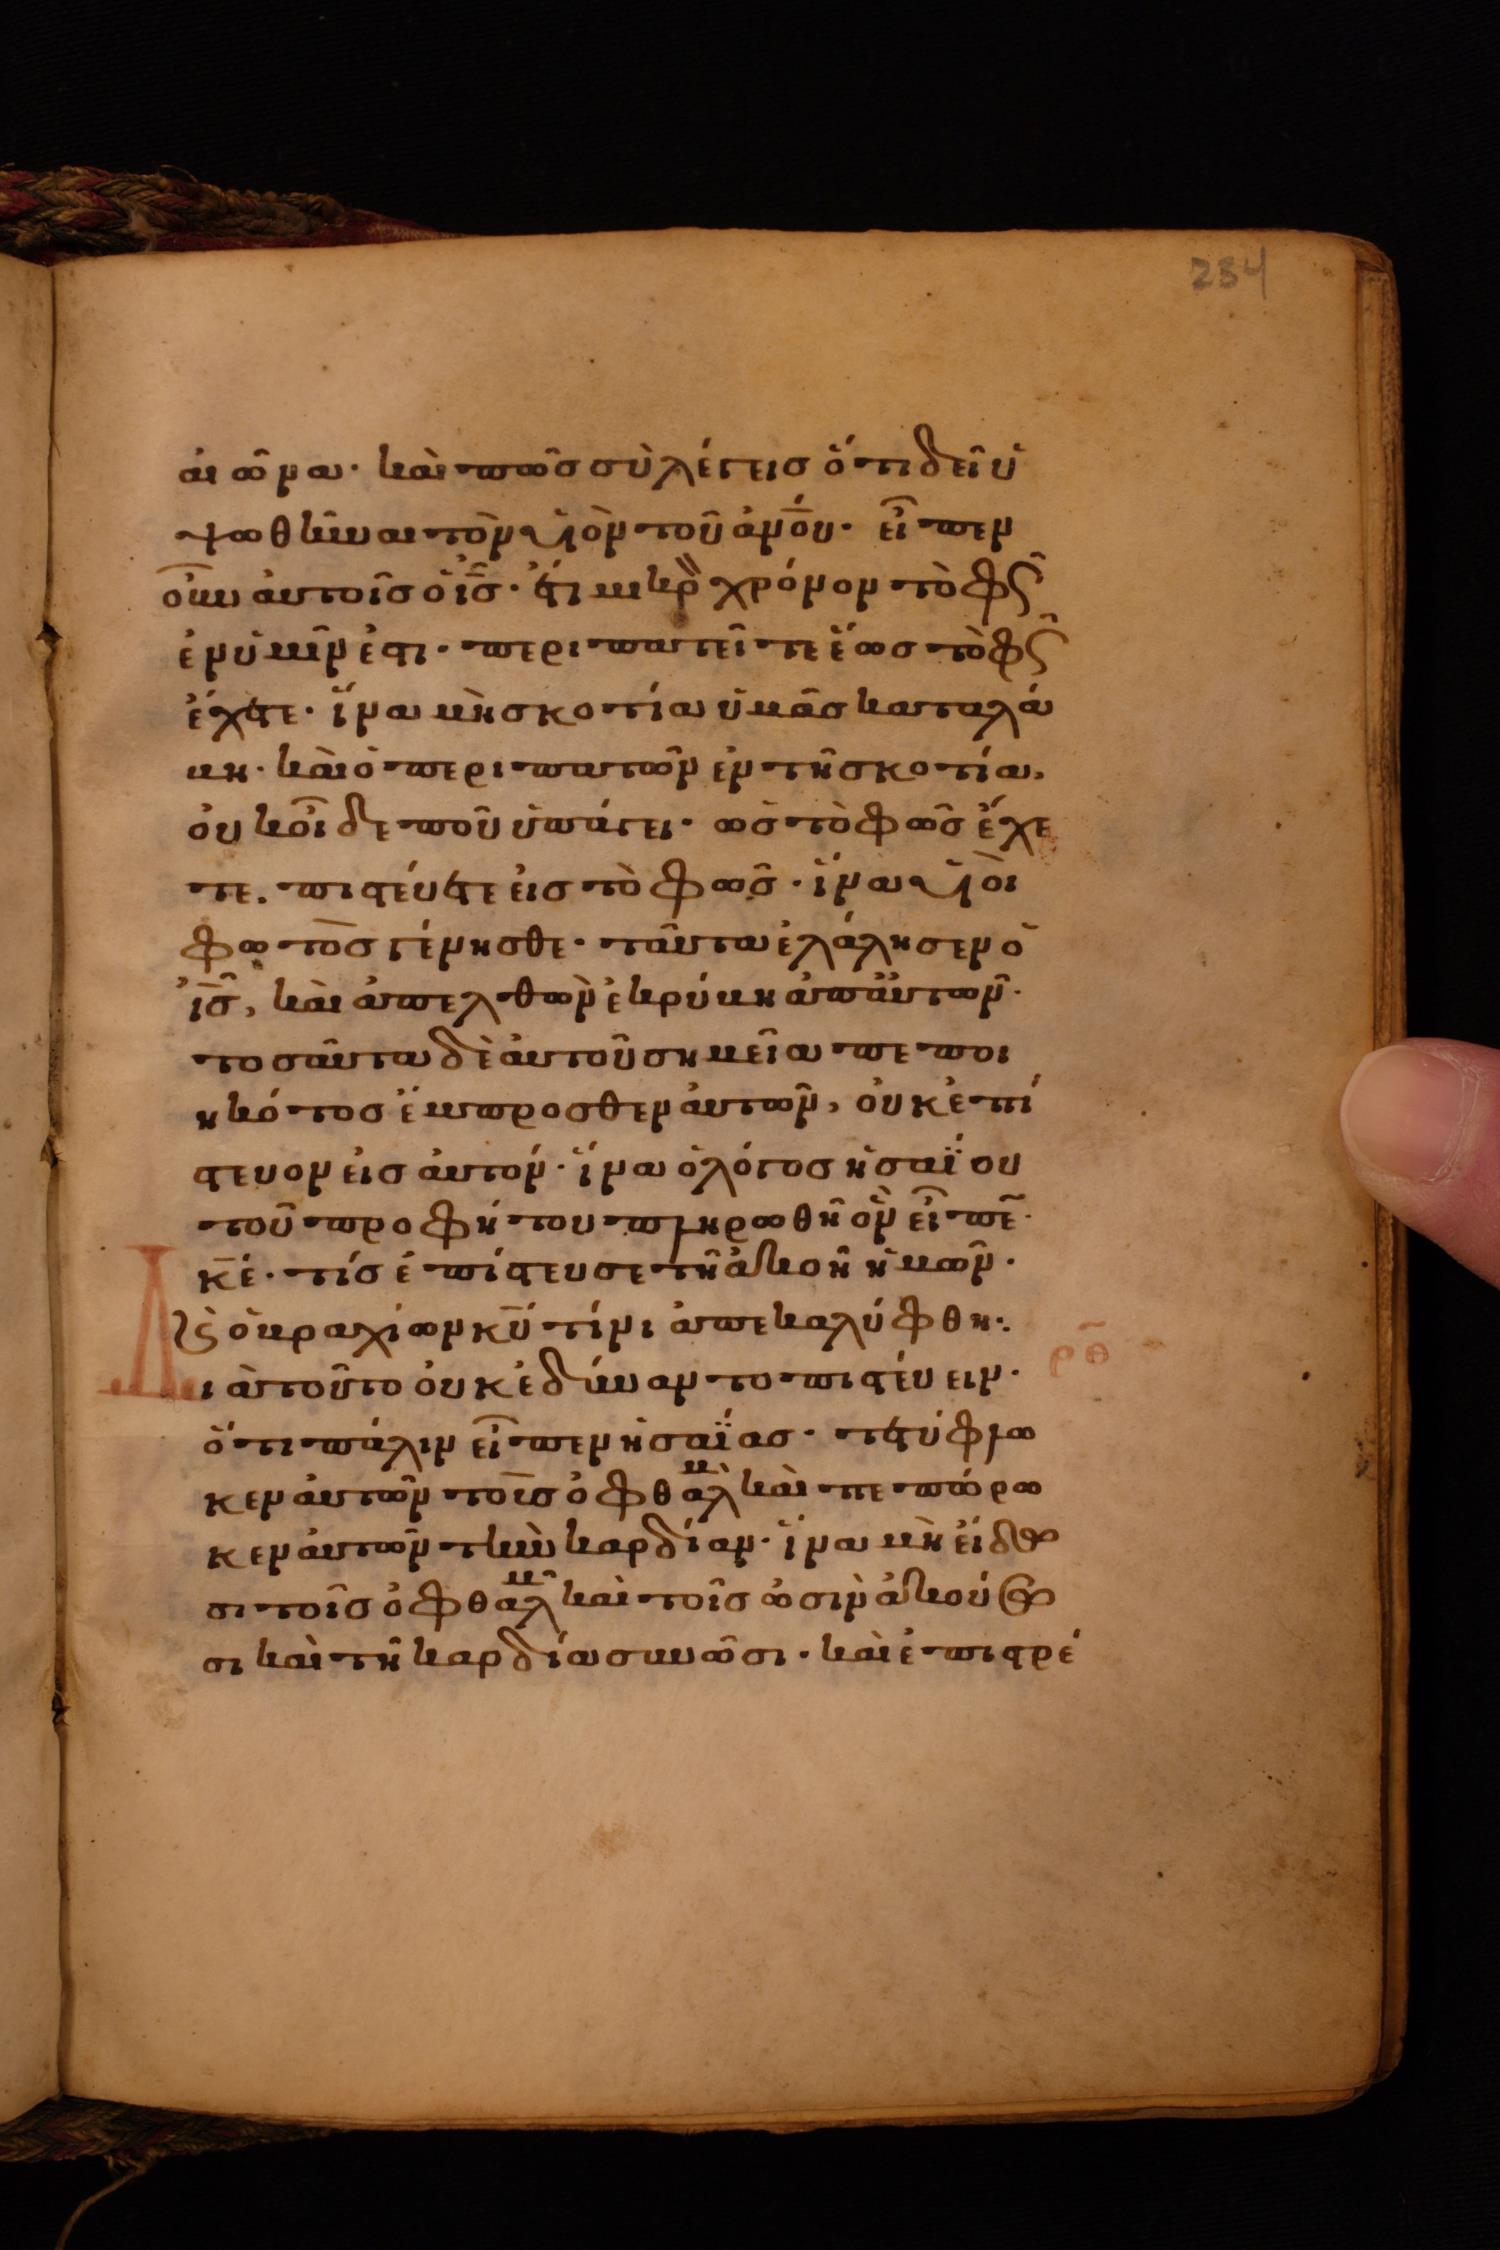 234
αιῶνα· καὶ πῶς σὺ λέγεις ὅτι δεῖ ὑ
ψωθῆναι τὸν υἱὸν τοῦ ἀν̅ο̅υ· εἶπεν
οὖν αὐτοῖς ὁ ι̅ς̅· ἔτι μικρὸν χρόνον τὸ φῶς
ἐν ὑμῖν ἐστι· περιπατεῖτε ἕως τὸ φῶς
ἔχετε· ἵνα μὴ σκοτία ὑμᾶς καταλά
βη· καὶ ὁ περιπατῶν ἐν τῆ σκοτία,
οὐκ οἶδε ποῦ ὑπάγει· ὡς τὸ φῶς ἔχε
τε. πιστεύετε εἰς τὸ φῶς· ἵνα υἱοὶ
φωτὸς γένησθε· ταῦτα ἐλάλησεν ὁ
ι̅ς̅, καὶ ἀπελθὼν ἐκρύβη ἀπ' αὐτῶν·
τοσαῦτα δὲ αὐτοῦ σημεῖα πεποι
ηκότος ἔμπροσθεν αὐτῶν, οὐκ ἐπί
στευον εἰς αὐτόν· ἵνα ὁ λόγος ἡσαΐου
τοῦ προφήτου πληρωθῆ ὃν εἶπε·
κ̅ε̅· τίς ἐπίστευσε τῆ ἀκοῆ ἡμῶν·
καὶ ὁ βραχίων κ̅υ̅ τίνι ἀπεκαλύφθη·:
Διὰ τοῦτο οὐκ ἐδύναντο πιστεύειν· ρθ
ὅτι πάλιν εἶπεν ἡσαΐας· τετύφλω
κεν αὐτῶν τοὺς ὀφθαλμ καὶ πεπώρω
κεν αὐτῶν τὴν καρδίαν· ἵνα μὴ εἴδω
σι τοῖς ὀφθαλμ καὶ τοῖς ὠσὶν ἀκούσω
σι καὶ τῆ καρδία συνῶσι· καὶ ἐπιστρέ